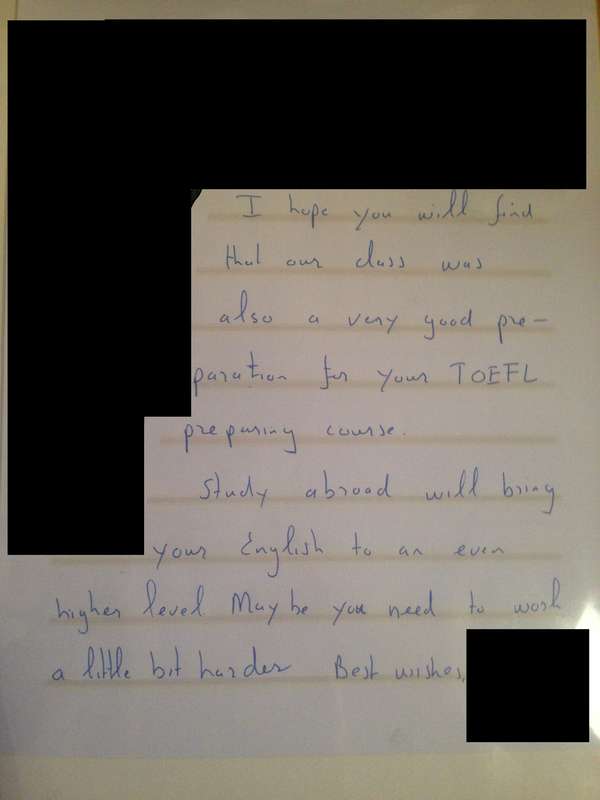 I hope you will find
that our class was
also a very good pre-
paration for your TOEFL
preparing course.
Study abroad will bring
your English to an even
higher level May be you need to work
a little bit harder Best wishes,